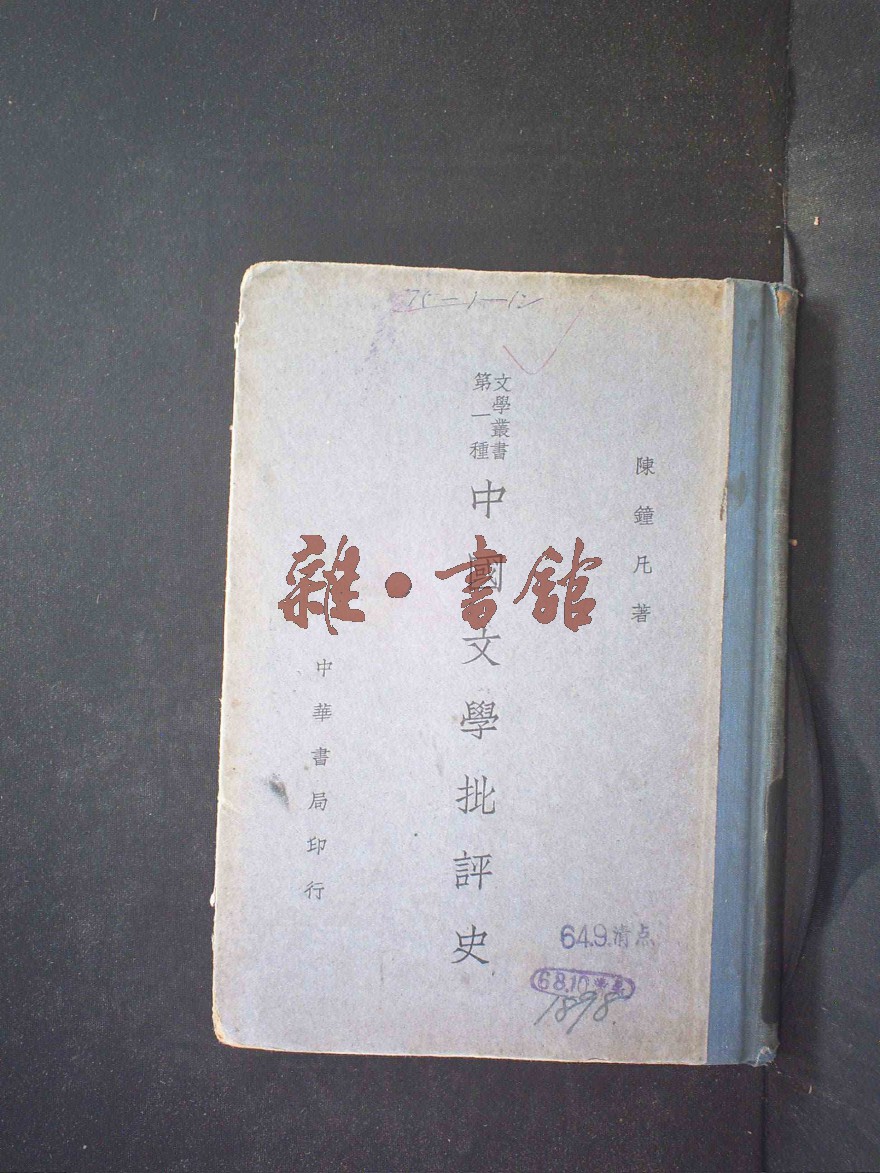 75-1-12
陳鐘凡著
文學叢書
第一種
中國文學批評史
中華書局印行
雜·書館
64.9.清点
68.10
1898.